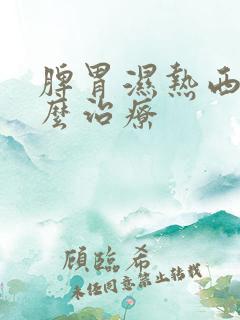 脾胃濕熱西
麼治療
顧臨希
未经同意禁止转载